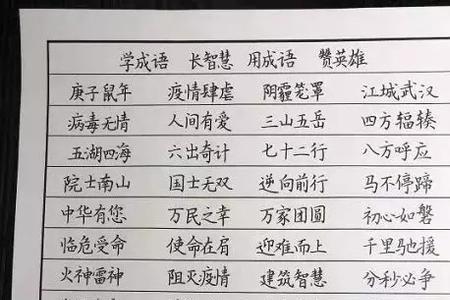 学成语 长智慧 用成语 赞英雄
庚子鼠年 疫情肆虐 阴霾笼罩 江城武汉
病毒无情 人间有爱 三山五岳 四方辐辏
五湖四海 六出奇计 七十二行 八方呼应
院士南山 国士无双 逆向前行 马不停蹄
中华有您 万民之幸 万家团圆 初心如磐
临危受命 使命在肩 迎难而上 千里驰援
火神雷神 阻灭疫情 建筑智慧 分秒必争